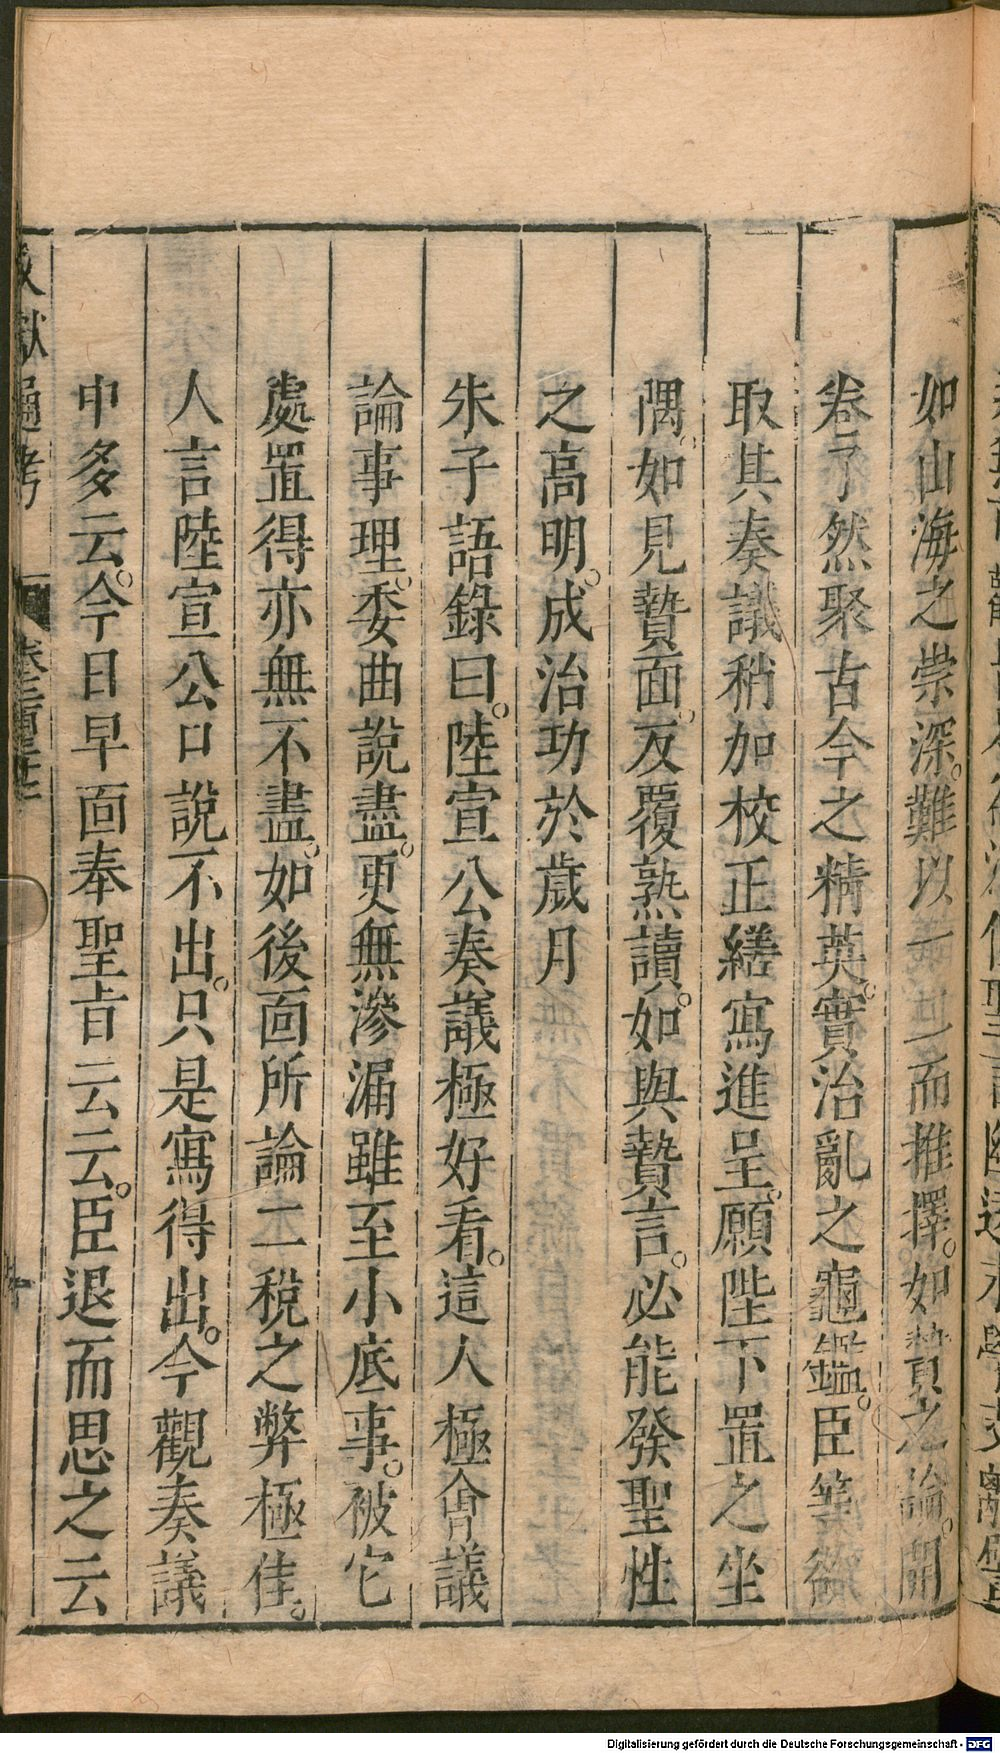 如山海之崇深。難以一二而推擇。如贄之論。開
卷了然聚古今之精英。實治亂之龜鑑。臣等欲
取其奏議稍加校正繕寫進呈。願陛下置之坐
隅。如見贄面。反覆熟讀。如與贄言。必能發聖性
之高明。成治功於歲月
朱子語錄曰。陸宣公奏議極好看。這人極會議
論事理。委曲說盡。更無滲漏雖至小底事。被它
處置得亦無不盡。如後面所論二稅之弊極佳。
人言陸宣公口說不出。只是寫得出。今觀奏議
中多云。今日早面奉聖旨云云。臣退而思之云
獻通考
Digitalisierung gefördert durch die Deutsche Forschungsgemeinschaft - DFG